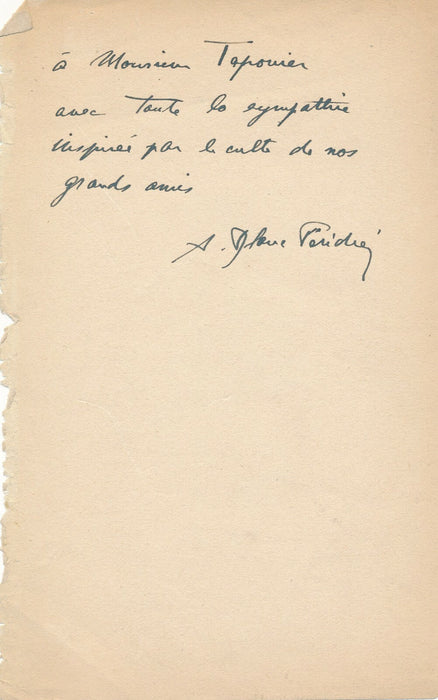 à Monsieur Taponier
avec toute la sympathie
inspirée par le culte de nos
grands amis
A. Blanc Péridier